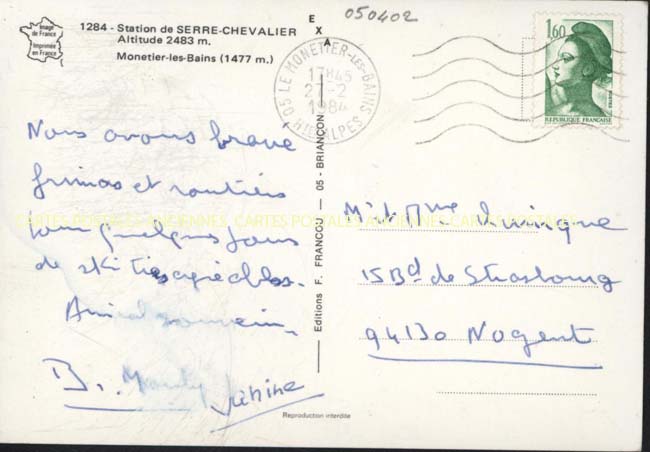 Image
de France
Imprimée
en France
1284 - Station de SERRE-CHEVALIER
Altitude 2483 m.
Monetier-les-Bains (1477 m.)
E
X
A
050402
05 LE MONETIER-LES-BAINS
17H45
27-2
1984
HTES ALPES
1,60
REPUBLIQUE FRANCAISE
Nous avons bravé
frimas et routiers
pour quelques jours
de ski très agréables.
Amical souvenir.
B. Sabine
Editions F. FRANCOU — 05 - BRIANÇON
Mr et Mme
15 Bd de Strasbourg
94130 Nogent
CARTES POSTALES ANCIENNES CARTES POSTALES ANCIENNES CARTES POSTALES
Reproduction interdite